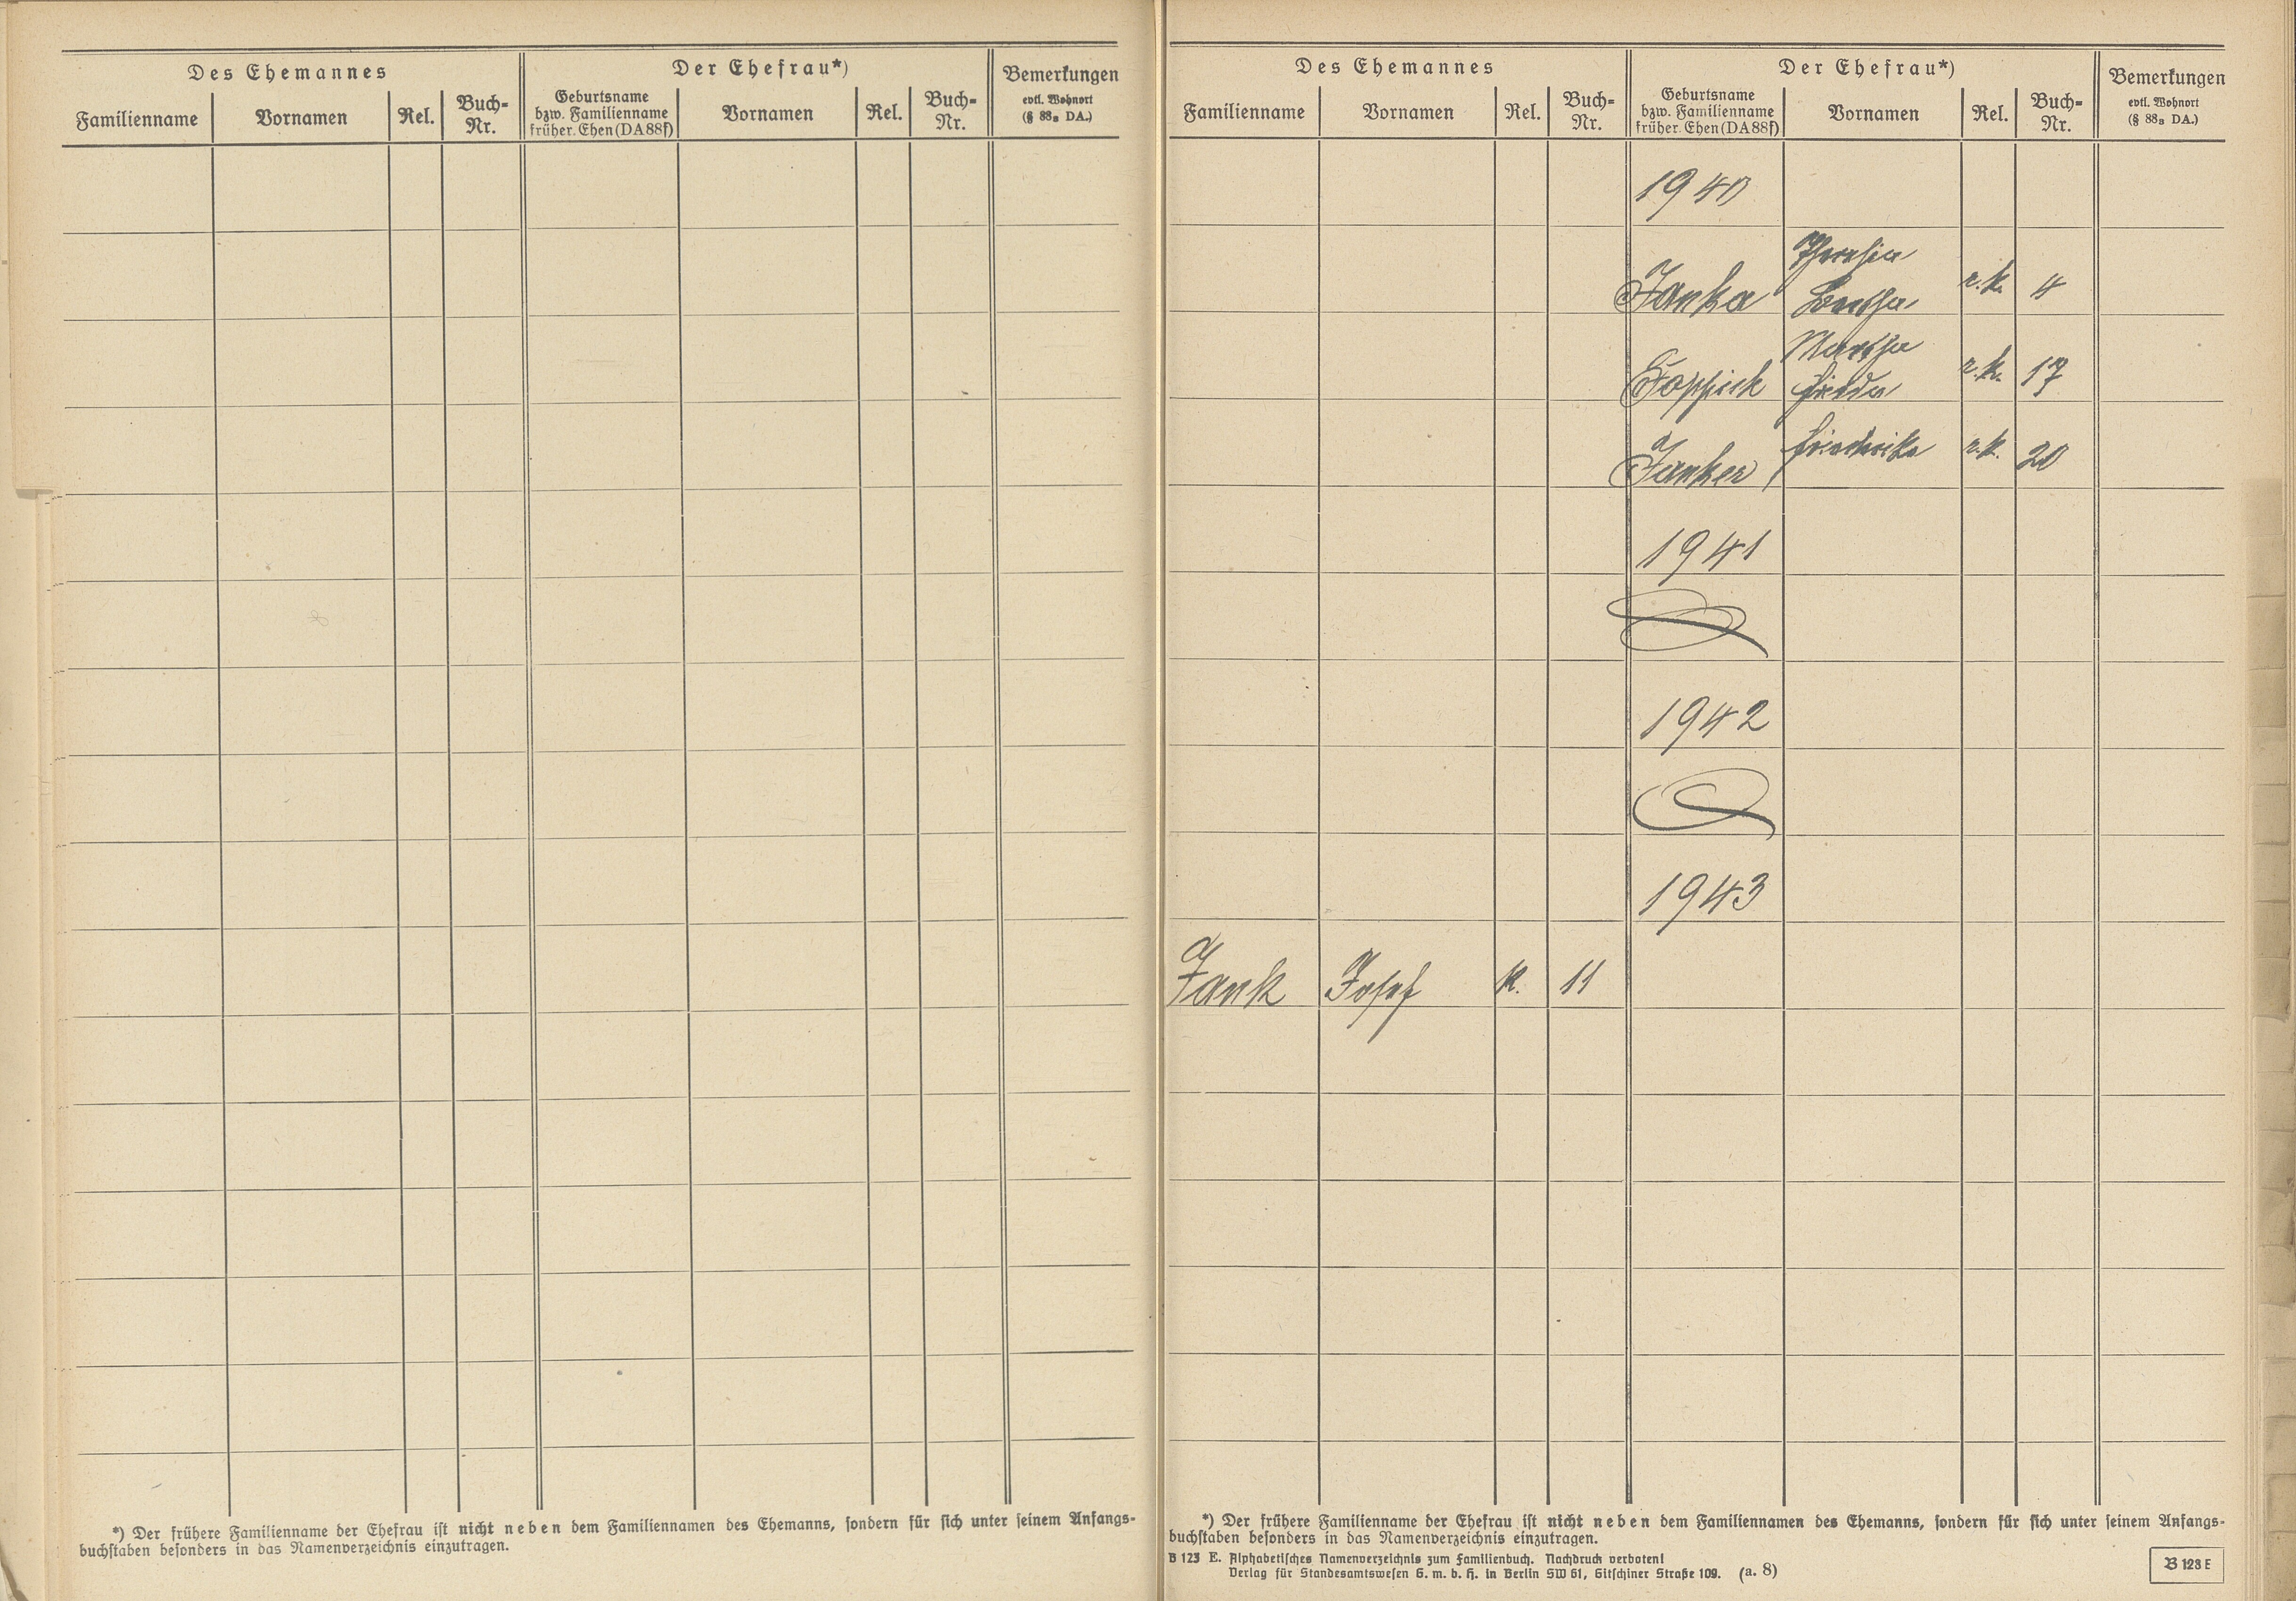 Des Ehemannes
Der Ehefrau*)
Bemerkungen
evtl. Wohnort
(§ 88a DA.)
Familienname
Vornamen
Rel.
Buch=
Nr.
Geburtsname
bzw. Familienname
früher. Ehen (DA 88f)
Vornamen
Rel.
Buch=
Nr.
*) Der frühere Familienname der Ehefrau ist nicht neben dem Familiennamen des Ehemanns, sondern für sich unter seinem Anfangs=
buchstaben besonders in das Namenverzeichnis einzutragen.
Des Ehemannes
Der Ehefrau*)
Bemerkungen
evtl. Wohnort
(§ 88a DA.)
Familienname
Vornamen
Rel.
Buch=
Nr.
Geburtsname
bzw. Familienname
früher. Ehen (DA 88f)
Vornamen
Rel.
Buch=
Nr.
1940
Theresia
Janka Bertha r.k. 4
Martha
Frieda r.k. 17
Junker Friederike r.k. 20
1941
1942
1943
Jank Josef k. 11
*) Der frühere Familienname der Ehefrau ist nicht neben dem Familiennamen des Ehemanns, sondern für sich unter seinem Anfangs=
buchstaben besonders in das Namenverzeichnis einzutragen.
B 123 E. Alphabetisches Namenverzeichnis zum Familienbuch. Nachdruck verboten!
Verlag für Standesamtswesen G. m. b. H. in Berlin SW 61, Gitschiner Straße 109. (a. 8)
B 123 E